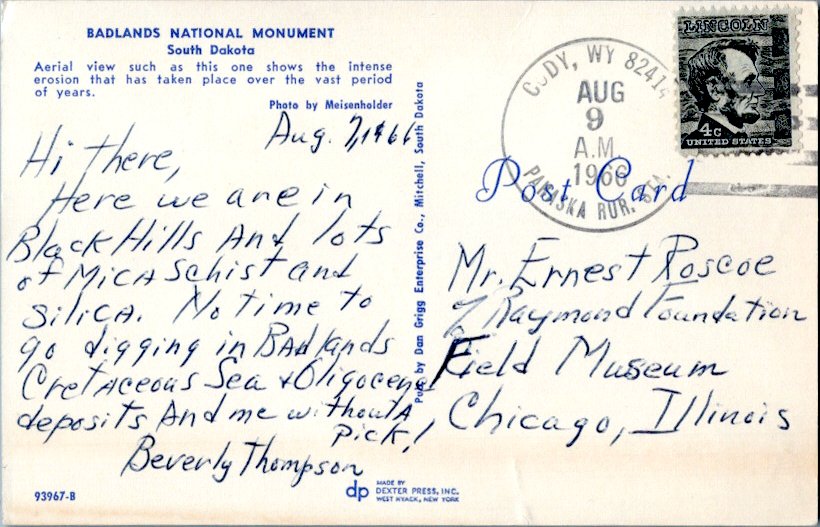 BADLANDS NATIONAL MONUMENT
South Dakota
Aerial view such as this one shows the intense
erosion that has taken place over the vast period
of years.
Photo by Meisenholder
Aug. 7, 1966
Hi there,
Here we are in
Black Hills And lots
of Mica Schist and
Silica. No time to
go digging in BAdlands
Cretaceous Sea & Oligocene
deposits And me without A
pick!
Beverly Thompson
93967-B
Pub. by Dan Grigg Enterprise Co., Mitchell, South Dakota
dp
MADE BY
DEXTER PRESS, INC.
WEST NYACK, NEW YORK
CODY, WY 82414
AUG
9
A.M.
1966
PAHASKA RUR. STA.
LINCOLN
4c
UNITED STATES
Post Card
Mr. Ernest Roscoe
% Raymond Foundation
Field Museum
Chicago, Illinois